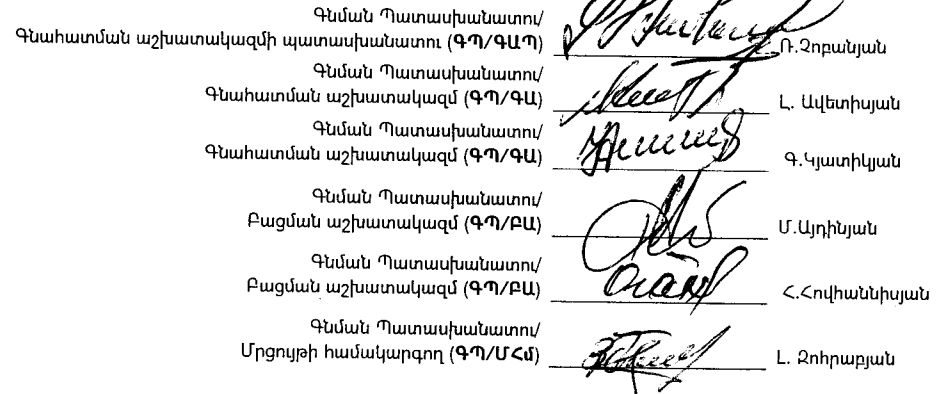 Գնման Պատասխանատու/
Գնահատման աշխատակազմի պատասխանատու (ԳՊ/ԳԱՊ) Ռ.Չոբանյան
Գնման Պատասխանատու/
Գնահատման աշխատակազմ (ԳՊ/ԳԱ) Լ. Ավետիսյան
Գնման Պատասխանատու/
Գնահատման աշխատակազմ (ԳՊ/ԳԱ) Գ.Կյատիկյան
Գնման Պատասխանատու/
Բացման աշխատակազմ (ԳՊ/ԲԱ) Մ.Այդինյան
Գնման Պատասխանատու/
Բացման աշխատակազմ (ԳՊ/ԲԱ) Հ.Հովհաննիսյան
Գնման Պատասխանատու/
Մրցույթի համակարգող (ԳՊ/ՄՀմ) Լ. Զոհրաբյան